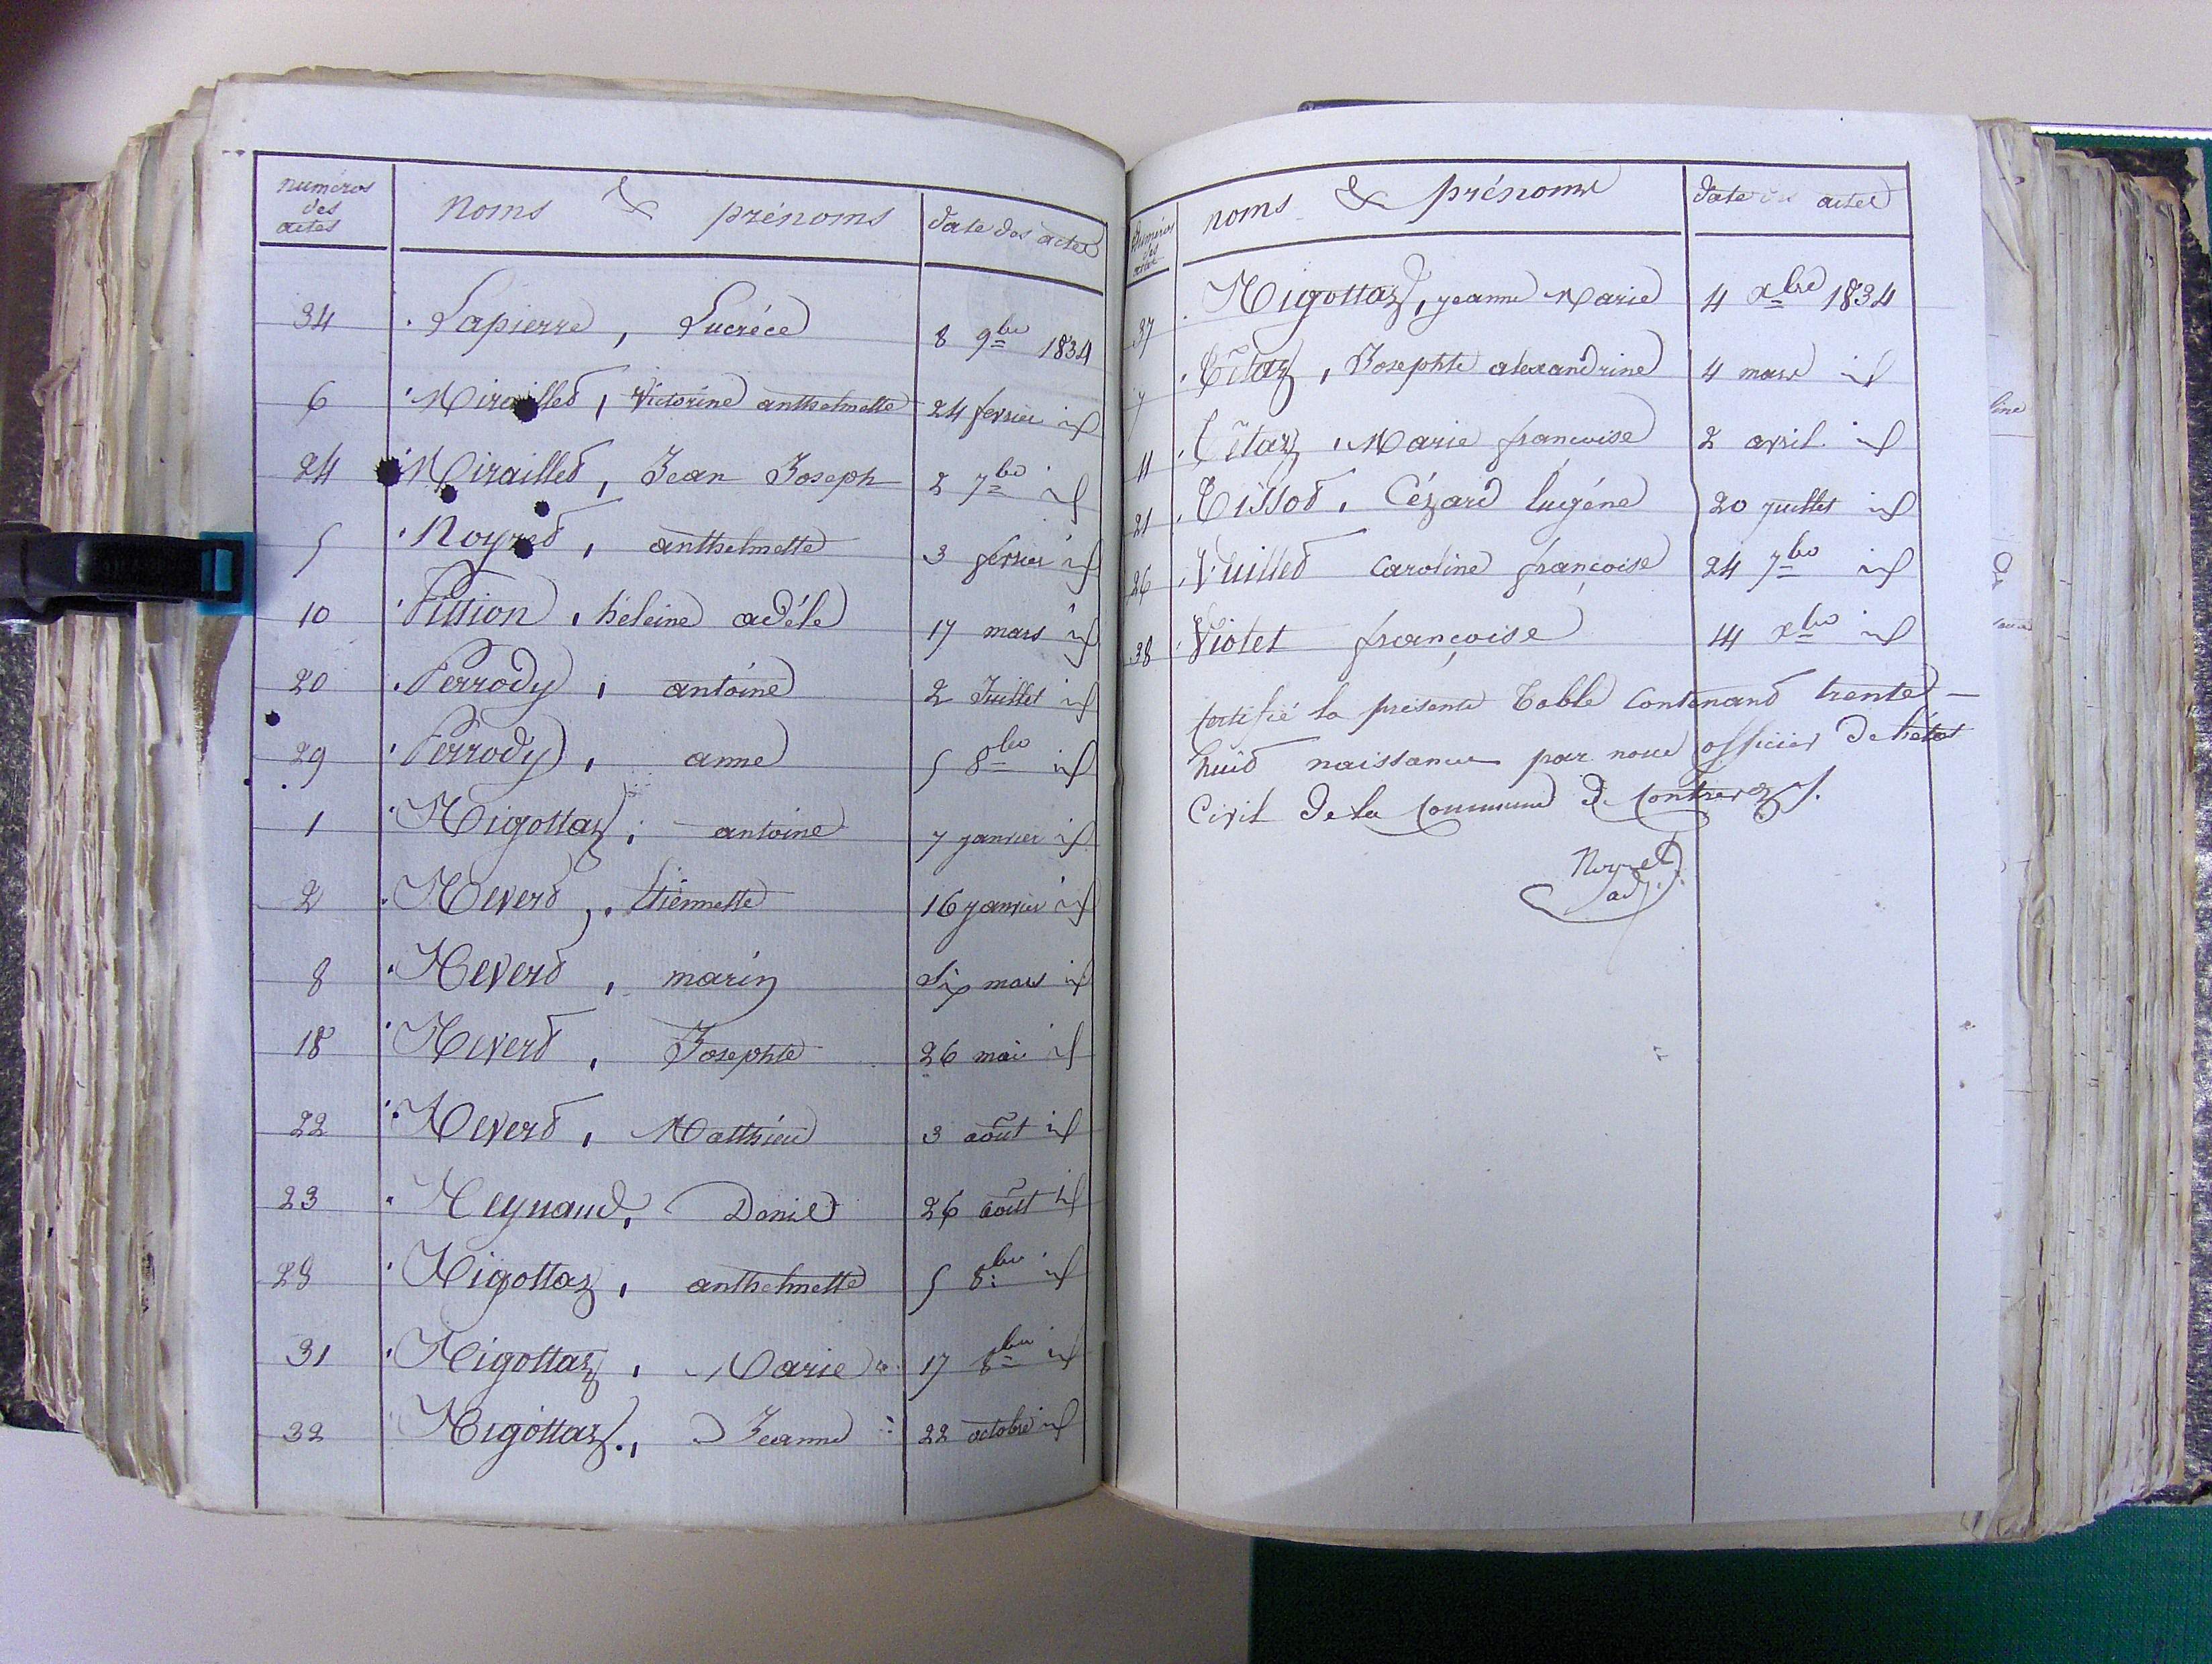 numéros
des
actes
noms & prénoms
date des actes
34 Lapierre, Lucréce 8 9bre 1834
6 Miraillet, Victorine anthelmette 24 fevrier id
24 Miraillet, Jean Joseph 2 7bre id
5 Noyret, anthelmette 3 fevrier id
10 Pission, héleine adéle 17 mars id
20 Perrody, antoine 2 Juillet id
29 Perrody, anne 5 8bre id
1 Rigottaz, antoine 7 janvier id
2 Reverd, Etiennette 16 janvier id
8 Reverd, marin Six mars id
18 Reverd, Josephte 26 mai id
22 Reverd, Matthieu 3 août id
23 Reynaud, Daniel 26 août id
28 Rigottaz, anthelmette 5 8bre id
31 Rigottaz, Marie 17 8bre id
32 Rigottaz, Jeanne 22 octobre id
Numéros
des
actes
noms & prénoms
date des actes
37 Rigottaz, jeanne Marie 4 xbre 1834
7 Titaz, Josephte alexandrine 4 mars id
11 Titaz, Marie francoise 2 avril id
21 Tissot, Cézard Eugéne 20 juillet id
26 Vuillet caroline françoise 24 7bre id
38 Violet françoise 14 xbre id
Certifié la présente Table contenand trente
huid naissances par nous officier de l'état
Civil de la commune de Contrevoz.
Noyret
adj.